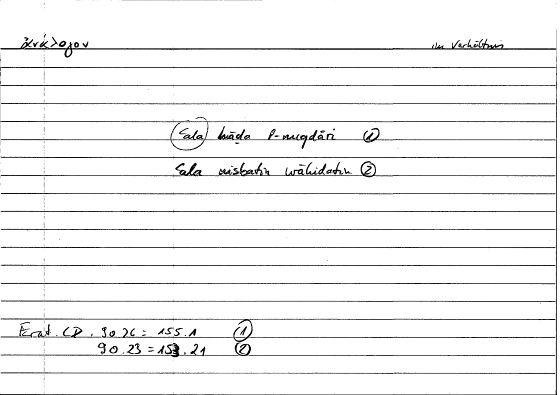 ἀνάλογον im Verhältnis
ʿalā hāḏa l-miqdāri ①
ʿalā nisbatin wāḥidatin ②
Erat. CD. 90.26 = 155.1 ①
90.23 = 153.21 ②